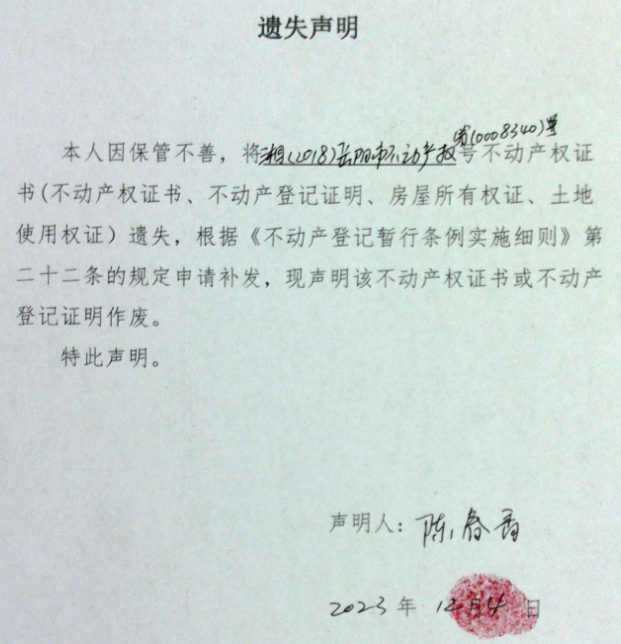 遗失声明
第(0008340)号
本人因保管不善，将湘(2018)岳阳市不动产权号不动产权证
书(不动产权证书、不动产登记证明、房屋所有权证、土地
使用权证）遗失，根据《不动产登记暂行条例实施细则》第
二十二条的规定申请补发，现声明该不动产权证书或不动产
登记证明作废。
特此声明。
声明人：陈春香
2023年12月4日